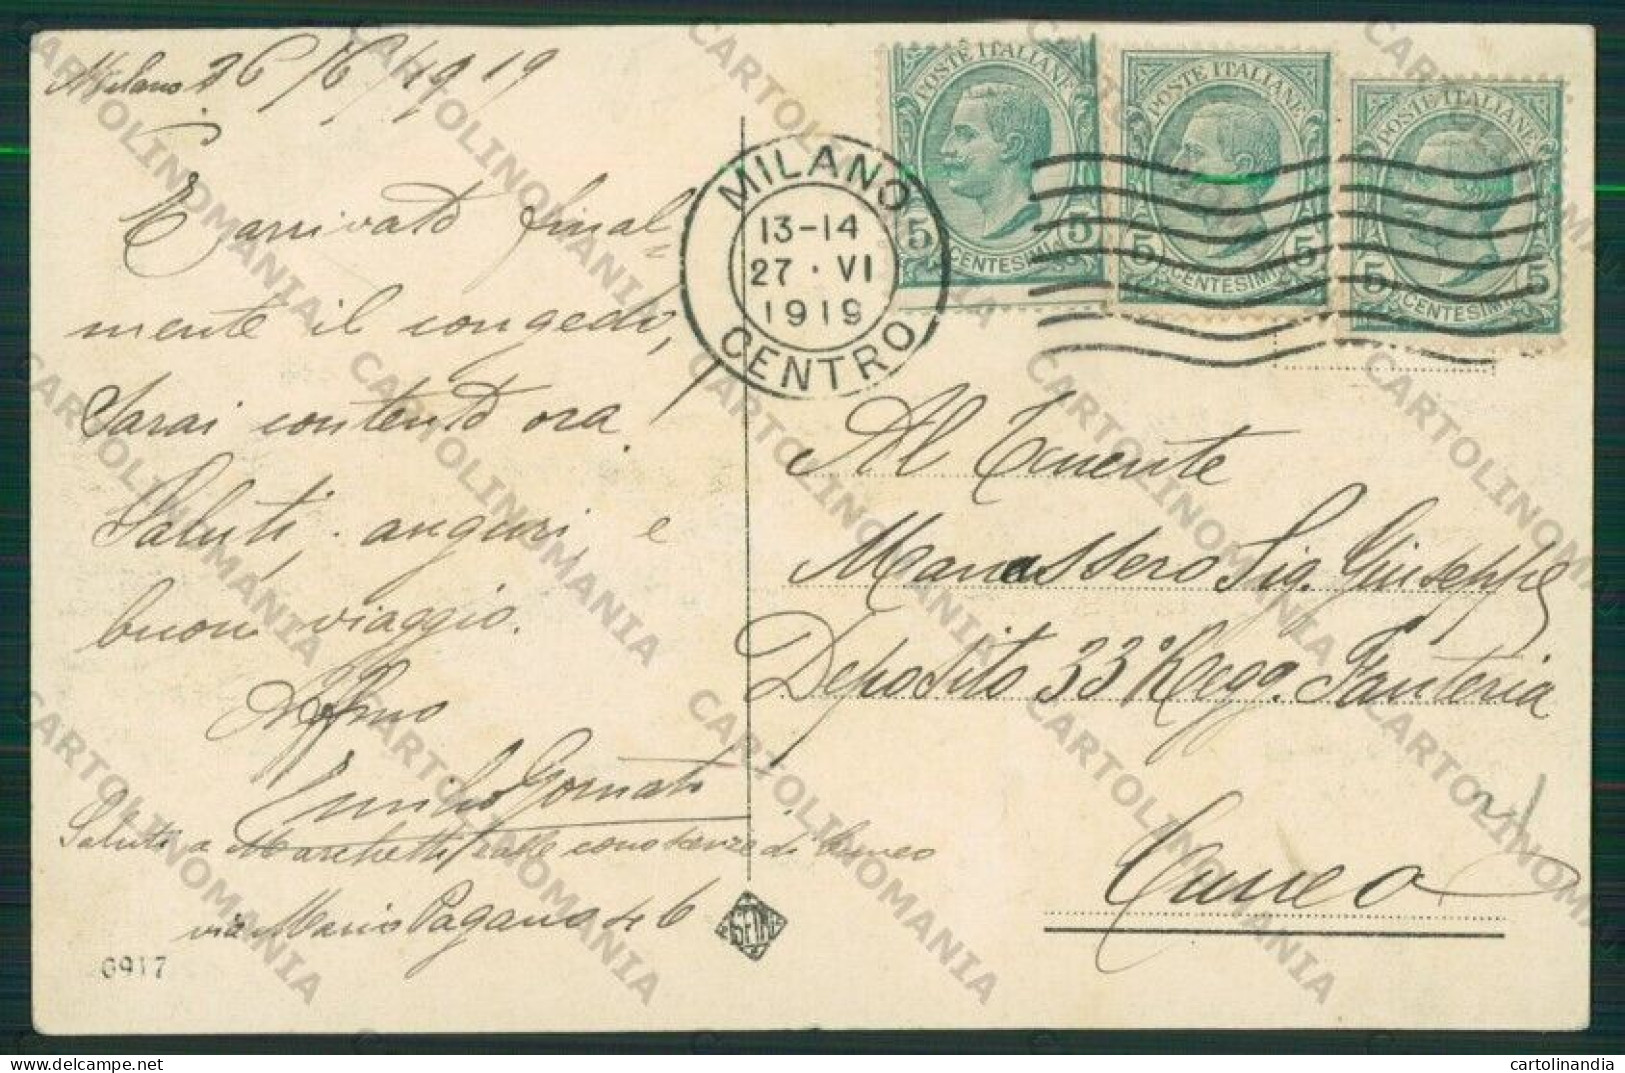 Milano 26/6/1919
È arrivato final=
mente il congedo,
Sarai contento ora.
Saluti, auguri, e
buon viaggio.
Aff.mo
Saluti a Marchetti e alle conoscenze di Cuneo
via Mario Pagano 46
0917
MILANO
13-14
27·VI
1919
CENTRO
POSTE ITALIANE
5 CENTESIMI 5
POSTE ITALIANE
5 CENTESIMI 5
POSTE ITALIANE
5 CENTESIMI 5
Al Tenente
Manassero Sig. Giuseppe
Deposito 33º Regg. Fanteria
Cuneo
CARTOLINOMANIA
cartolinandia